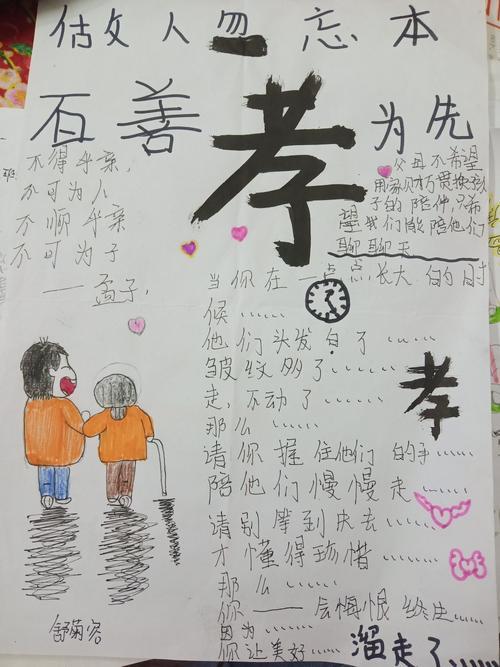 做人勿忘本
百善孝为先
不得乎亲,
不可为人
不顺乎亲
不可为子
——孟子,
父母不希望
用家财万贯换孩
子的陪伴,只希
望我们能陪他们
聊聊天
当你在一点点,长大的时
候……
他们头发白了……
皱纹多了……
走,不动了……
那么……
请你握住他们的手……
陪他们慢慢走……
请别等到失去……
才懂得珍惜……
那么……
你——会悔恨终生……
因为……
你让美好……溜走了……
孝
舒菊容